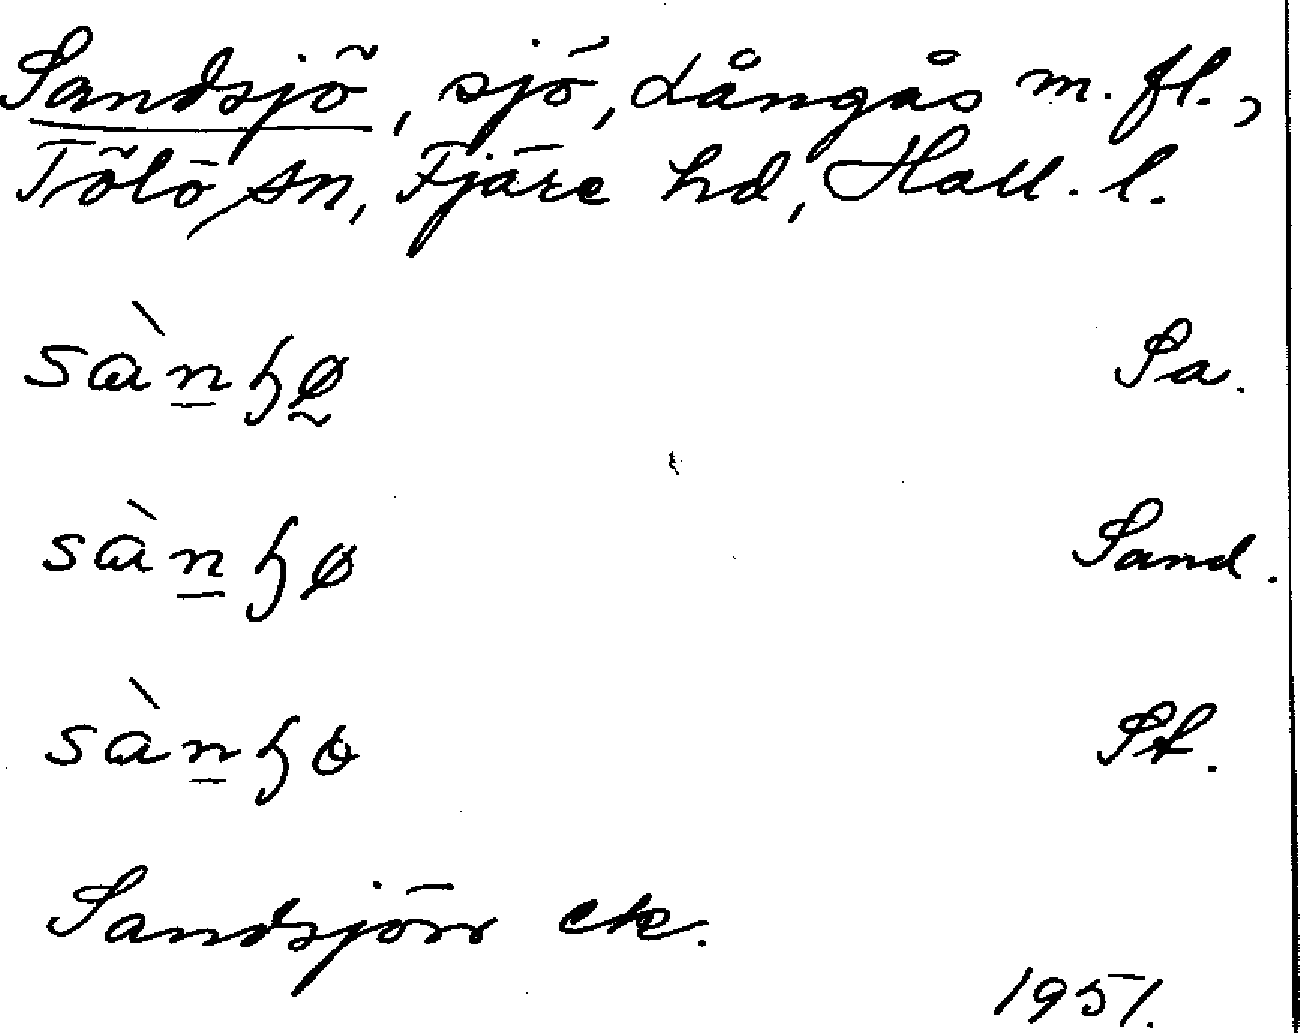 Sandsjö, sjö, Långås m. fl.,
Tölö sn, Fjäre hd, Hall. l.
sàn̲ɧø̰ Sa.
sàn̲ɧø Sand.
sàn̲ɧɵ St.
Sandsjön ek.
1951.